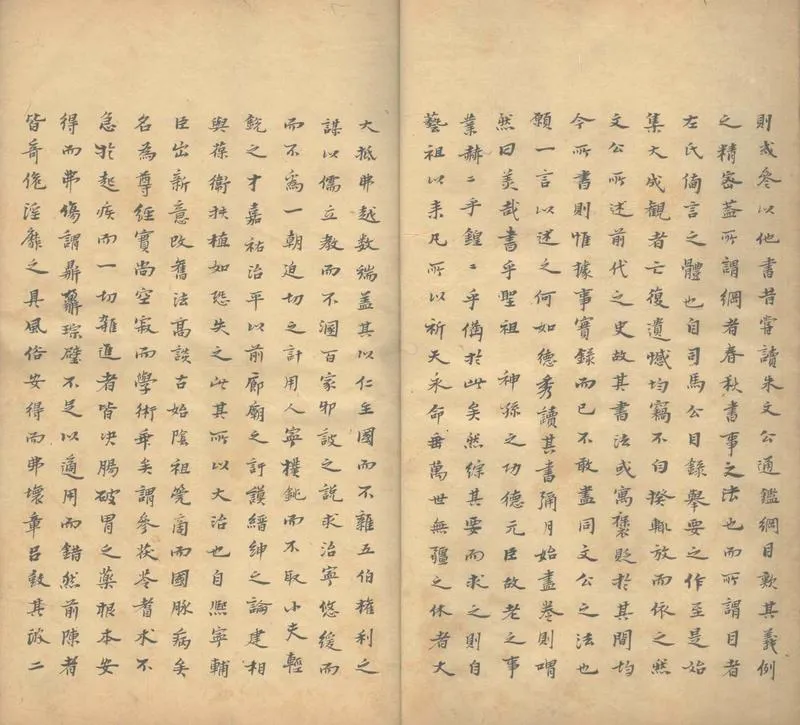 則或參以他書昔嘗讀朱文公通鑑綱目歎其義例
之精密蓋所謂綱者春秋書事之法也而所謂目者
左氏備言之體也自司馬公目錄舉要之作至是始
集大成觀者亡復遺憾均竊不自揆輙放而依之然
文公所述前代之史故其書法或寓褒貶於其間均
今所書則惟據事實錄而已不敢盡同文公之法也
願一言以述之何如德秀讀其書彌月始盡卷則喟
然曰美哉書乎聖祖 神孫之功德元臣故老之事
業赫二乎鍠二乎備於此矣然綜其要而求之則自
藝祖以来凡所以祈天永命垂萬世無疆之休者大
大抵弗越数端盖其以仁立國而不雜五伯權利之
謀以儒立教而不溷百家邪詖之説求治寧悠緩而
而不為一朝迫切之計用人寧樸鈍而不取小夫輕
鋭之才嘉祐治平以前廊廟之訏謨縉紳之論建相
與葆衛扶植如恐失之此其所以大治也自熙寧輔
臣出新意改舊法高談古始陰祖筦商而國脉病矣
名為尊經實尚空寂而學術乖矣謂參茯苓耆术不
急於起疾而一切雜進者皆决腸破胃之藥根本安
得而弗傷謂鼎鼐琮璧不足以適用而錯然前陳者
皆奇傀淫靡之具風俗安得而弗壞章呂鼓其波二